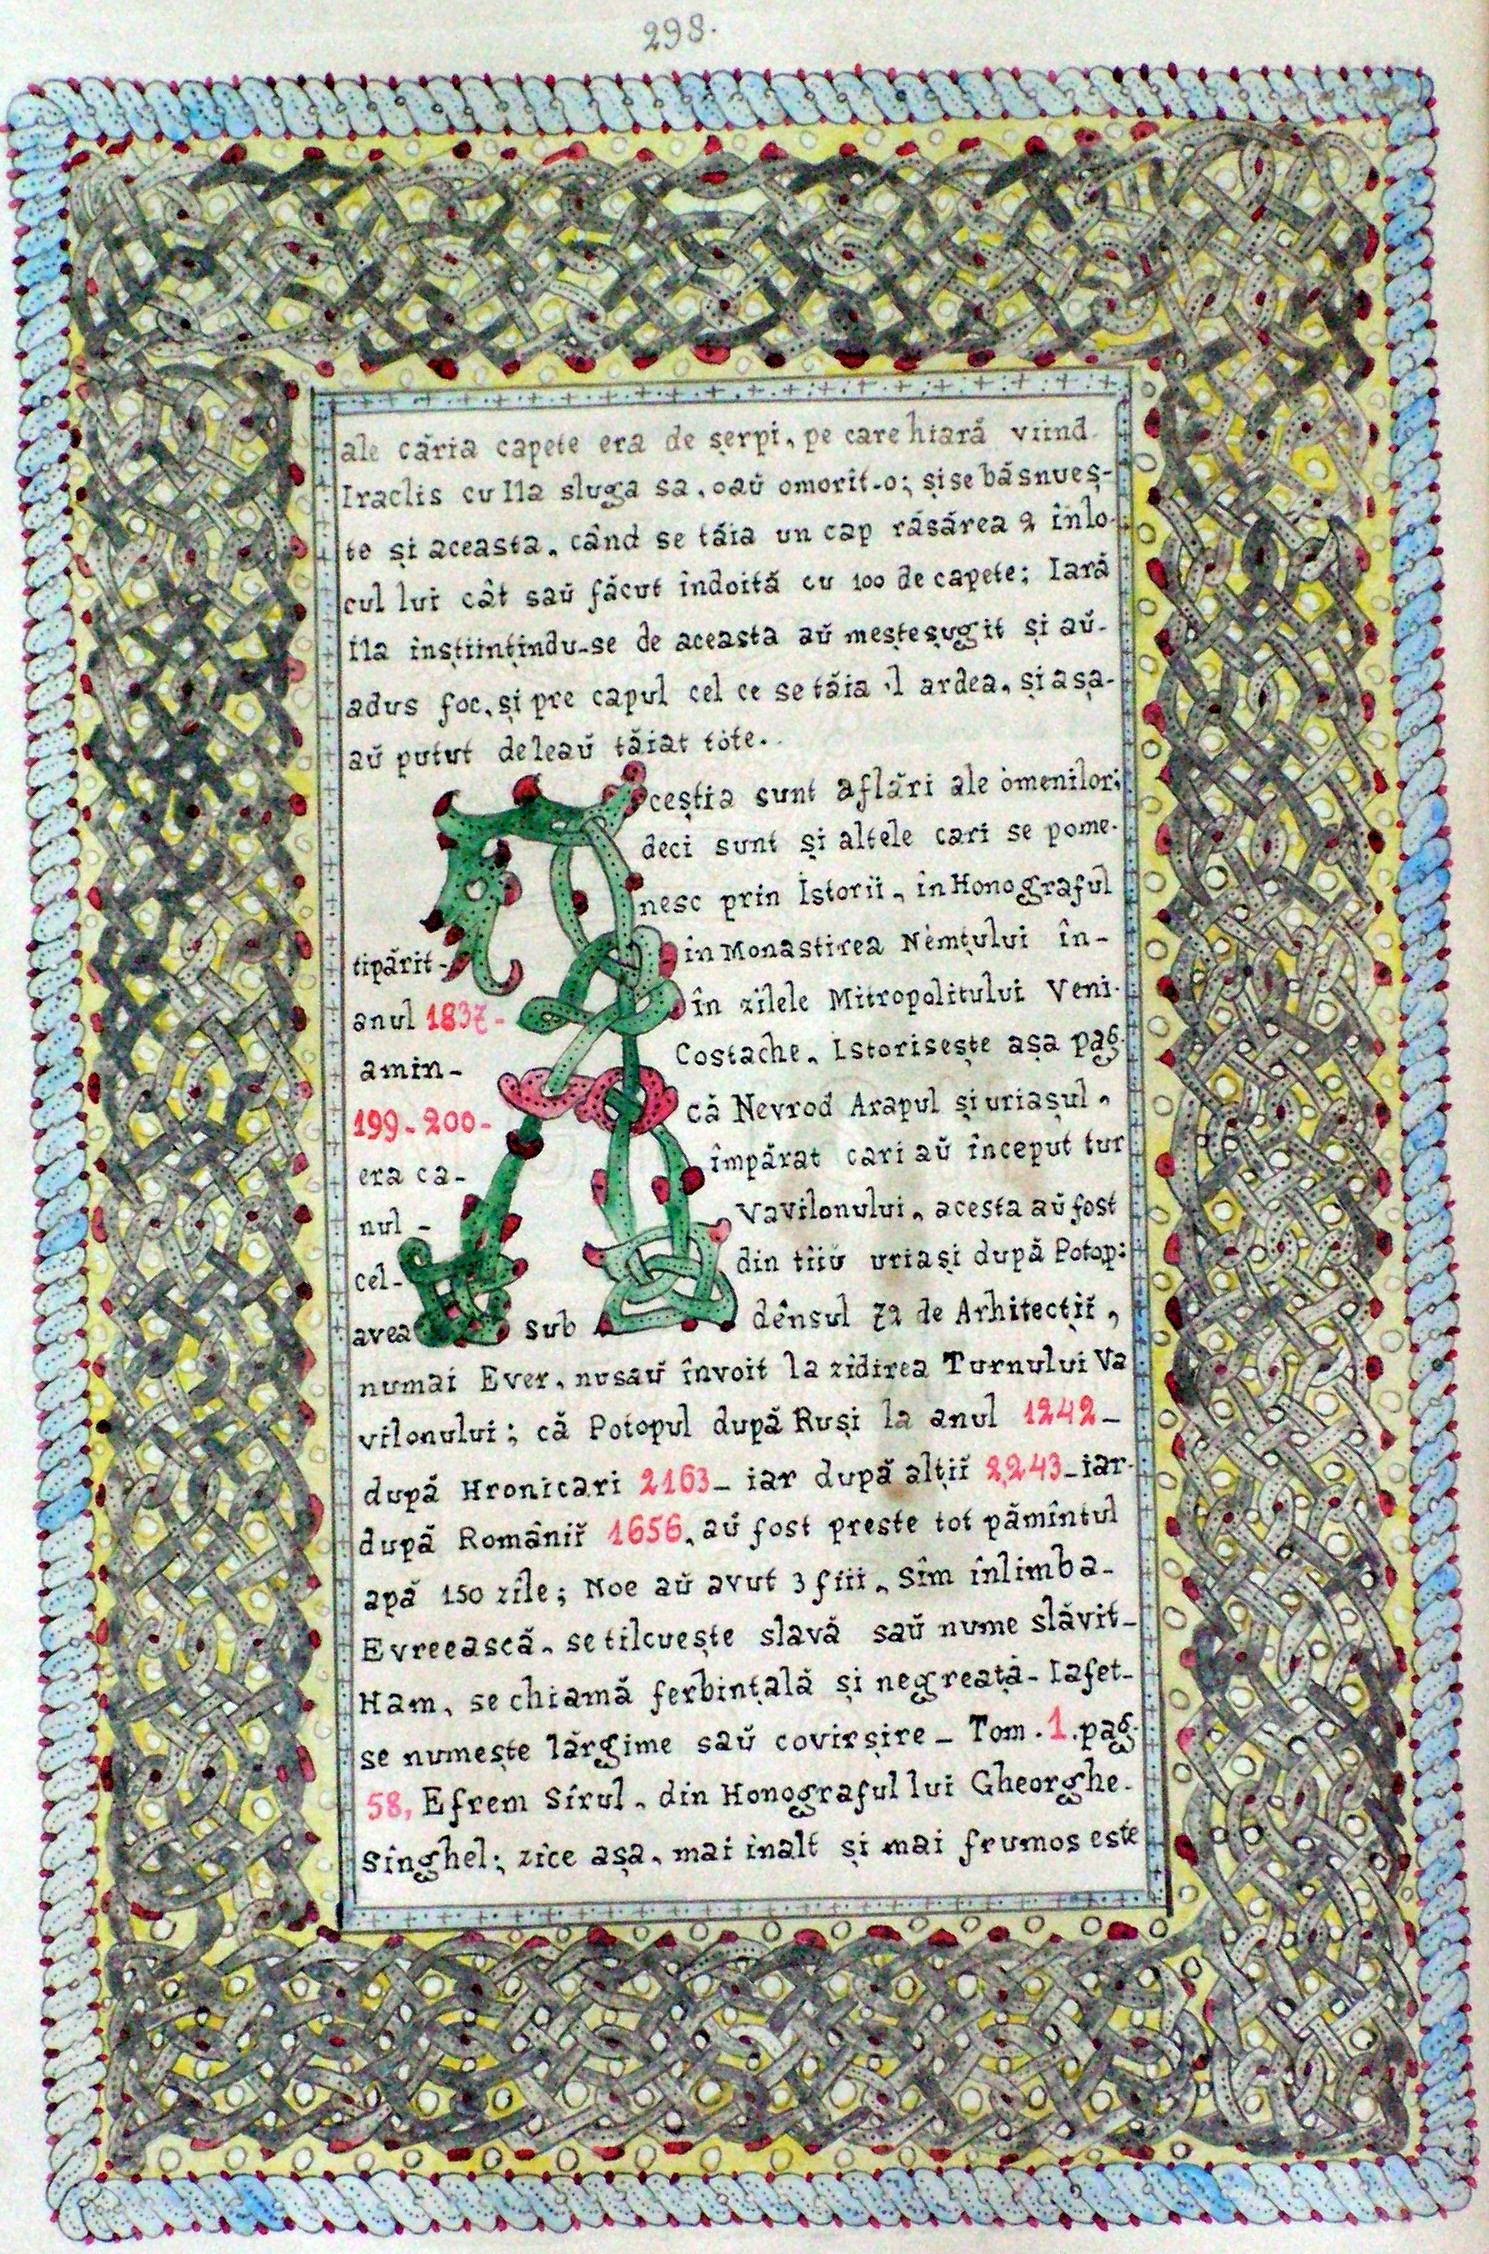 298.
ale căria capete era de șerpi, pe care hiară viind
Iraclis cu Ila sluga sa, oaŭ omorit-o; și se băsnueș-
te și aceasta, când se tăia un cap răsărea 2 înlo-
cul lui cât saŭ făcut îndoită cu 100 de capete; Iară
Ila înștiințindu-se de aceasta aŭ meșteșugit și aŭ-
adus foc, și pre capul cel ce se tăia îl ardea, și așa-
aŭ putut de leaŭ tăiat tóte.
Aceștia sunt aflări ale ómenilor;
deci sunt și altele cari se pome-
nesc prin Istorii, în Honograful
tipărit- în Monastirea Némțului în-
anul 1837- în zilele Mitropolitului Veni-
amin- Costache, Istorisește așa pag.
199-200- că Nevrod Arapul și uriașul,
era ca- împărat cari aŭ început tur
nul - Vavilonului, acesta aŭ fost
cel- din tîiŭ uriași după Potop:
avea sub dênsul 72 de Arhitecțiĭ,
numai Ever, nusaŭ învoit la zidirea Turnului Va
vilonului; că Potopul după Ruși la anul 1242-
după Hronicari 2163- iar după alțiĭ 2,243- iar-
după Româniĭ 1656, aŭ fost preste tot pămîntul
apă 150 zile; Noe aŭ avut 3 fiii, Sîm înlimba-
Evreească, se tilcuește slavă saŭ nume slăvit-
Ham, se chiamă ferbințală și negreață- Iafet-
se numește lărgime saŭ covirșire- Tom. 1. pag.
58, Efrem Sirul, din Honograful lui Gheorghe-
Sînghel; zice așa, mai inalt și mai frumos este